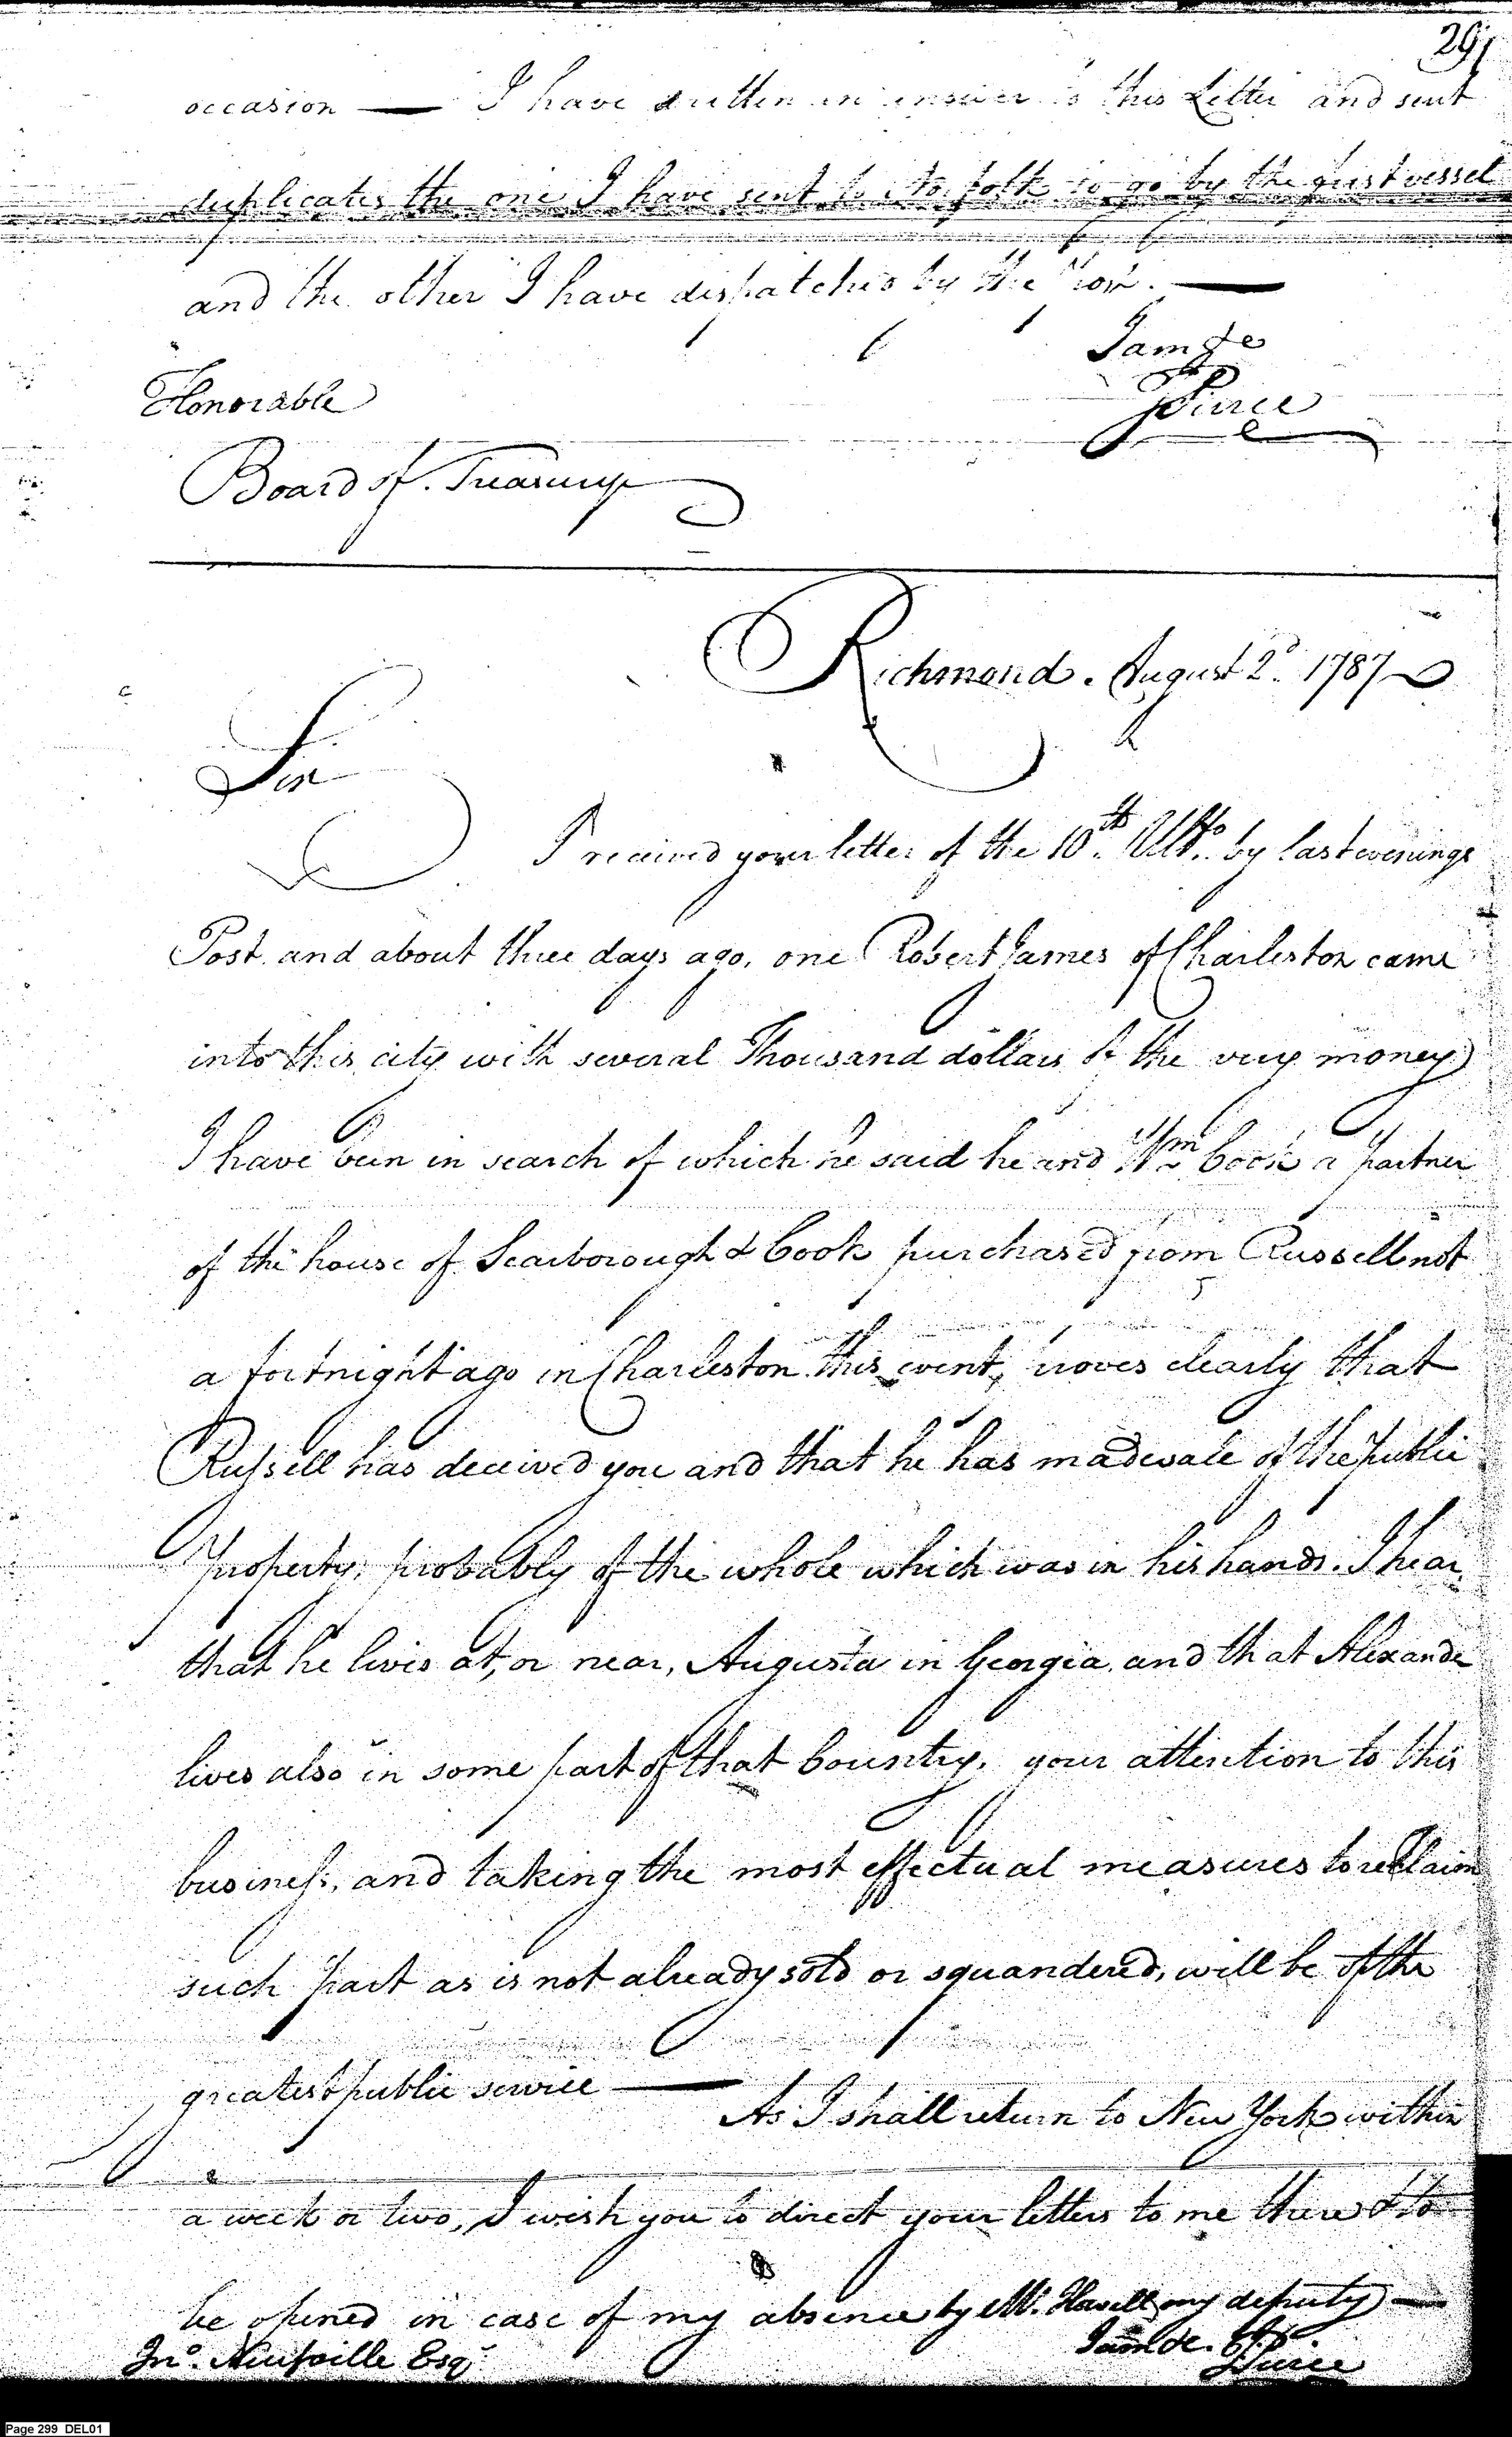 291
occasion — I have written in answer to this Letter and sent
duplicates the one I have sent to Norfolk to go by the first vessel
and the other I have dispatched by the Post. —
I am &c
J Pierce
Honorable
Board of Treasury
Richmond. August 2d. 1787
Sir
I received your letter of the 10th. Ulto. by last evenings
Post. and about three days ago, one Robert James of Charleston came
into this city with several Thousand dollars of the very money
I have been in search of which he said he and Wm Cook a partner
of the house of Scarborough & Cook purchased from Russell not
a fortnight ago in Charleston. this event, proves clearly that
Russell has deceived you and that he has made sale of the Public
Property, probably of the whole which was in his hands. I hear
that he lives at, or near, Augusta in Georgia, and that Alexander
lives also in some part of that Country, your attention to this
business, and taking the most effectual measures to reclaim
such part as is not already sold or squandered, will be of the
greatest public service —
As I shall return to New York within
a week or two, I wish you to direct your letters to me there & to
be opened in case of my absence by Mr. Howell my deputy —
I am &c. J Pierce
Jno. Neufville Esqr
Page 299 DEL01